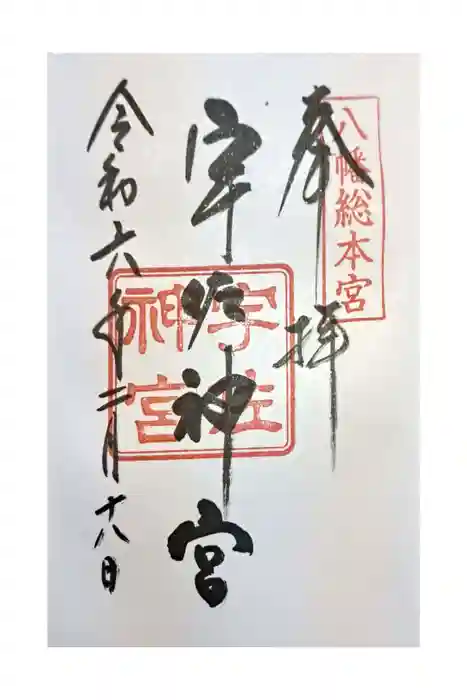 八幡総本宮
奉拝
宇佐神宮
宇佐
神宮
令和六年二月十八日